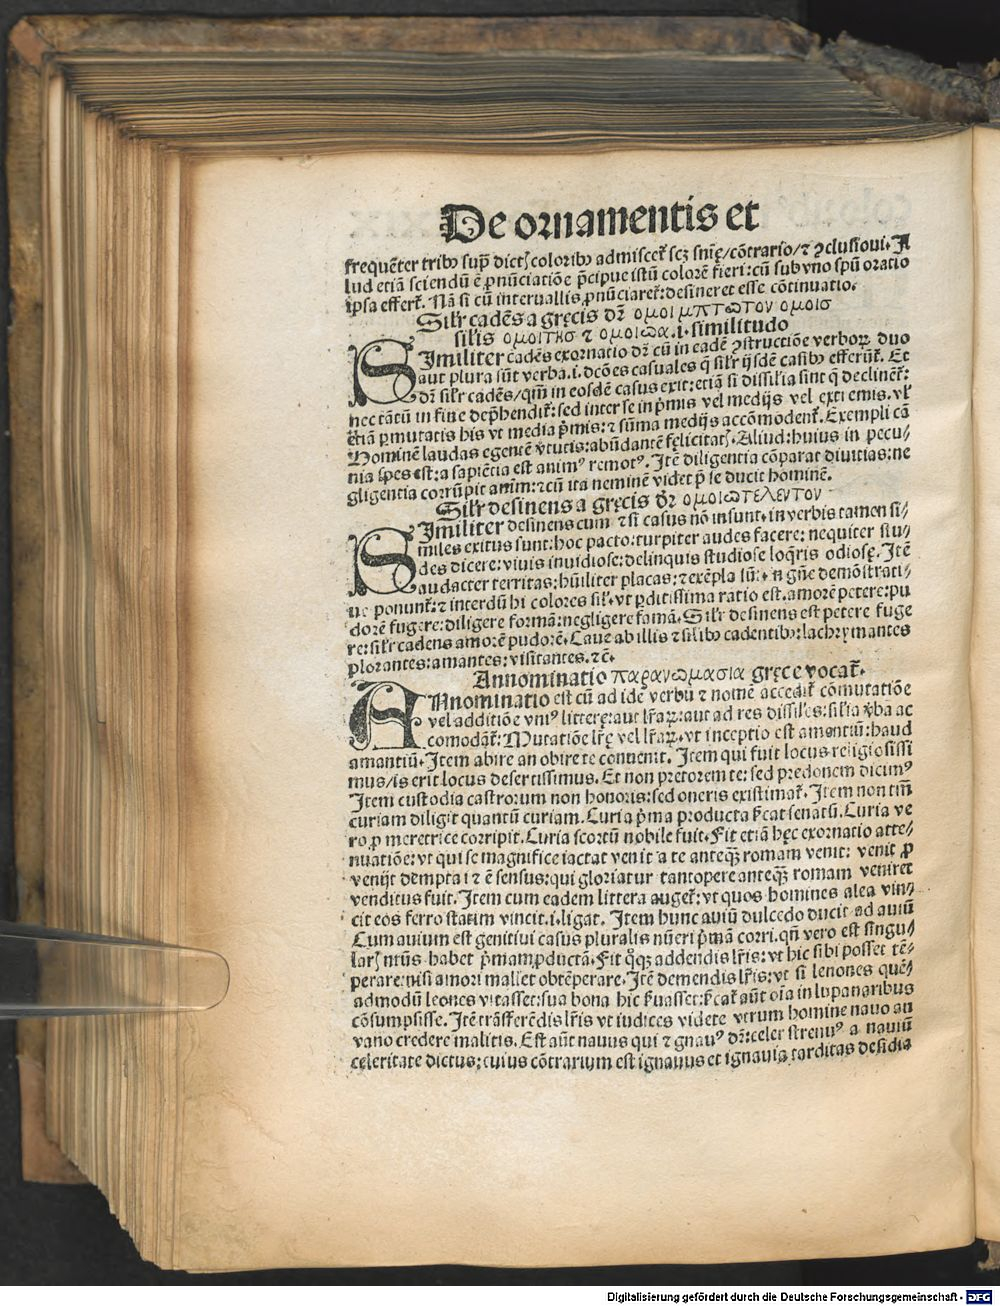 De ornamentis et
frequēter tribꝰ sup̄ dictꝭ coloribꝰ admiscet᷑ scꝫ sn̄ię/cōtrario/⁊ ꝯclusioni. Il
lud etiā sciendū ē ꝓnūciatiōe p̄cipue istū colorē fieri: cū sub vno spū oratio
ipsa effert᷑. Nā si cū interuallis ꝓnūciaret᷑: desineret esse cōtinuatio.
Silr̄ cadēs a gręcis dr̄ ομοιμπτωτον ομοισ
silis ομοιτησ ⁊ ομοιωα .i. similitudo
SImiliter cadēs exornatio dr̄ cū in eadē ꝯstructiōe verboꝝ duo
aut plura sūt verba .i. dcōes casuales q̄ silr̄ ijsdē casibꝰ efferūt᷑. Et
dr̄ silr̄ cadēs/qm̄ in eosdē casus exit: etiā si dissil̄ia sint q̄ declinēt᷑:
nec tātū in fine dep̄hendit᷑: sed inter se in p̄mis vel medijs vel extremis. vl̓
etiā ꝑmutatis his vt media p̄mis: ⁊ sūma medijs accōmodent᷑. Exempli cā
Hominē laudas egentē v̓tutis: abūdantē fęlicitatꝭ. Aliud: huius in pecu/
nia spes est: a sapiētia est animꝰ remotꝰ. Itē diligentia cōparat diuitias: ne
gligentia corrūpit anīm: ⁊ cū ita neminē videt p̄ se ducit hominē.
Silr̄ desinens a gręcis dr̄ ομοιωτελεντον
SImiliter desinens cum ⁊ si casus nō insunt. in verbis tamen si/
miles exitus sunt: hoc pacto: turpiter audes facere: nequiter stu/
des dicere: viuis inuidiose: delinquis studiose loq̄ris odiosę. Itē
audacter territas: hūiliter placas: ⁊ exēpla in gn̄e demōstrati/
uo ponunt᷑: ⁊ interdū hi colores sil̓. vt ꝑditissima ratio est. amorē petere: pu
dorē fugere: diligere formā: negligere famā. Silr̄ desinens est petere fuge
re: silr̄ cadens amorē pudorē. Caue ab illis ⁊ silibꝰ cadentibꝰ: lachrymantes
plorantes: amantes: visitantes. ⁊c̄.
Annominatio παρανωμασια gręce vocat᷑.
ANnominatio est cū ad idē verbū ⁊ nomē accedit᷑ cōmutatiōe
vel additiōe vniꝰ litterę: aut lr̄aꝝ: aut ad res dissiles: sil̄ia v̓ba ac
comodāt᷑: Mutatiōe lr̄ę vel lr̄aꝝ. vt inceptio est amentiū: haud
amantiū. Item abire an obire te conuenit. Item qui fuit locus religiosissi
mus/is erit locus desertissimus. Et non pretorem te: sed predonem dicimꝰ
Item custodia castrorum non honoris: sed oneris existimat᷑. Item non tm̄
curiam diligit quantū curiam. Curia p̄ma producta p̄cat senatū. Curia ve
ro ꝓ meretrice corripit. Curia scortū nobile fuit. Fit etiā hęc exornatio atte/
nuatiōe: vt qui se magnifice iactat venit a te anteqꝫ romam venit: venit ꝓ
venijt dempta i ⁊ ē sensus: qui gloriatur tantopere anteqꝫ romam veniret
venditus fuit. Item cum eadem littera auget᷑: vt quos homines alea vin/
cit eos ferro statim vincit .i. ligat. Item hunc auiū dulcedo ducit ad auiū
Cum auium est genitiui casus pluralis nūeri p̄mā corri. qn̄ vero est singu/
larꝭ ntūs habet p̄mam ꝓductā. Fit q̊qꝫ addendis lr̄is: vt hic sibi posset tē/
perare: nisi amori mallet obtēperare. Itē demendis lr̄is: vt si lenones quē/
admodū leones vitasset: sua bona hic p̄uasset: aūt oīa in lupanaribus
cōsumpsisse. Itē trāsferēdis lr̄is vt iudices videte vtrum homine nauo an
vano credere malitis. Est aūt nauus qui ⁊ gnauꝰ dr̄: celer strenuꝰ a nauiū
celeritate dictus: cuius cōtrarium est ignauus et ignauia tarditas desidia
Digitalisierung gefördert durch die Deutsche Forschungsgemeinschaft - DFG